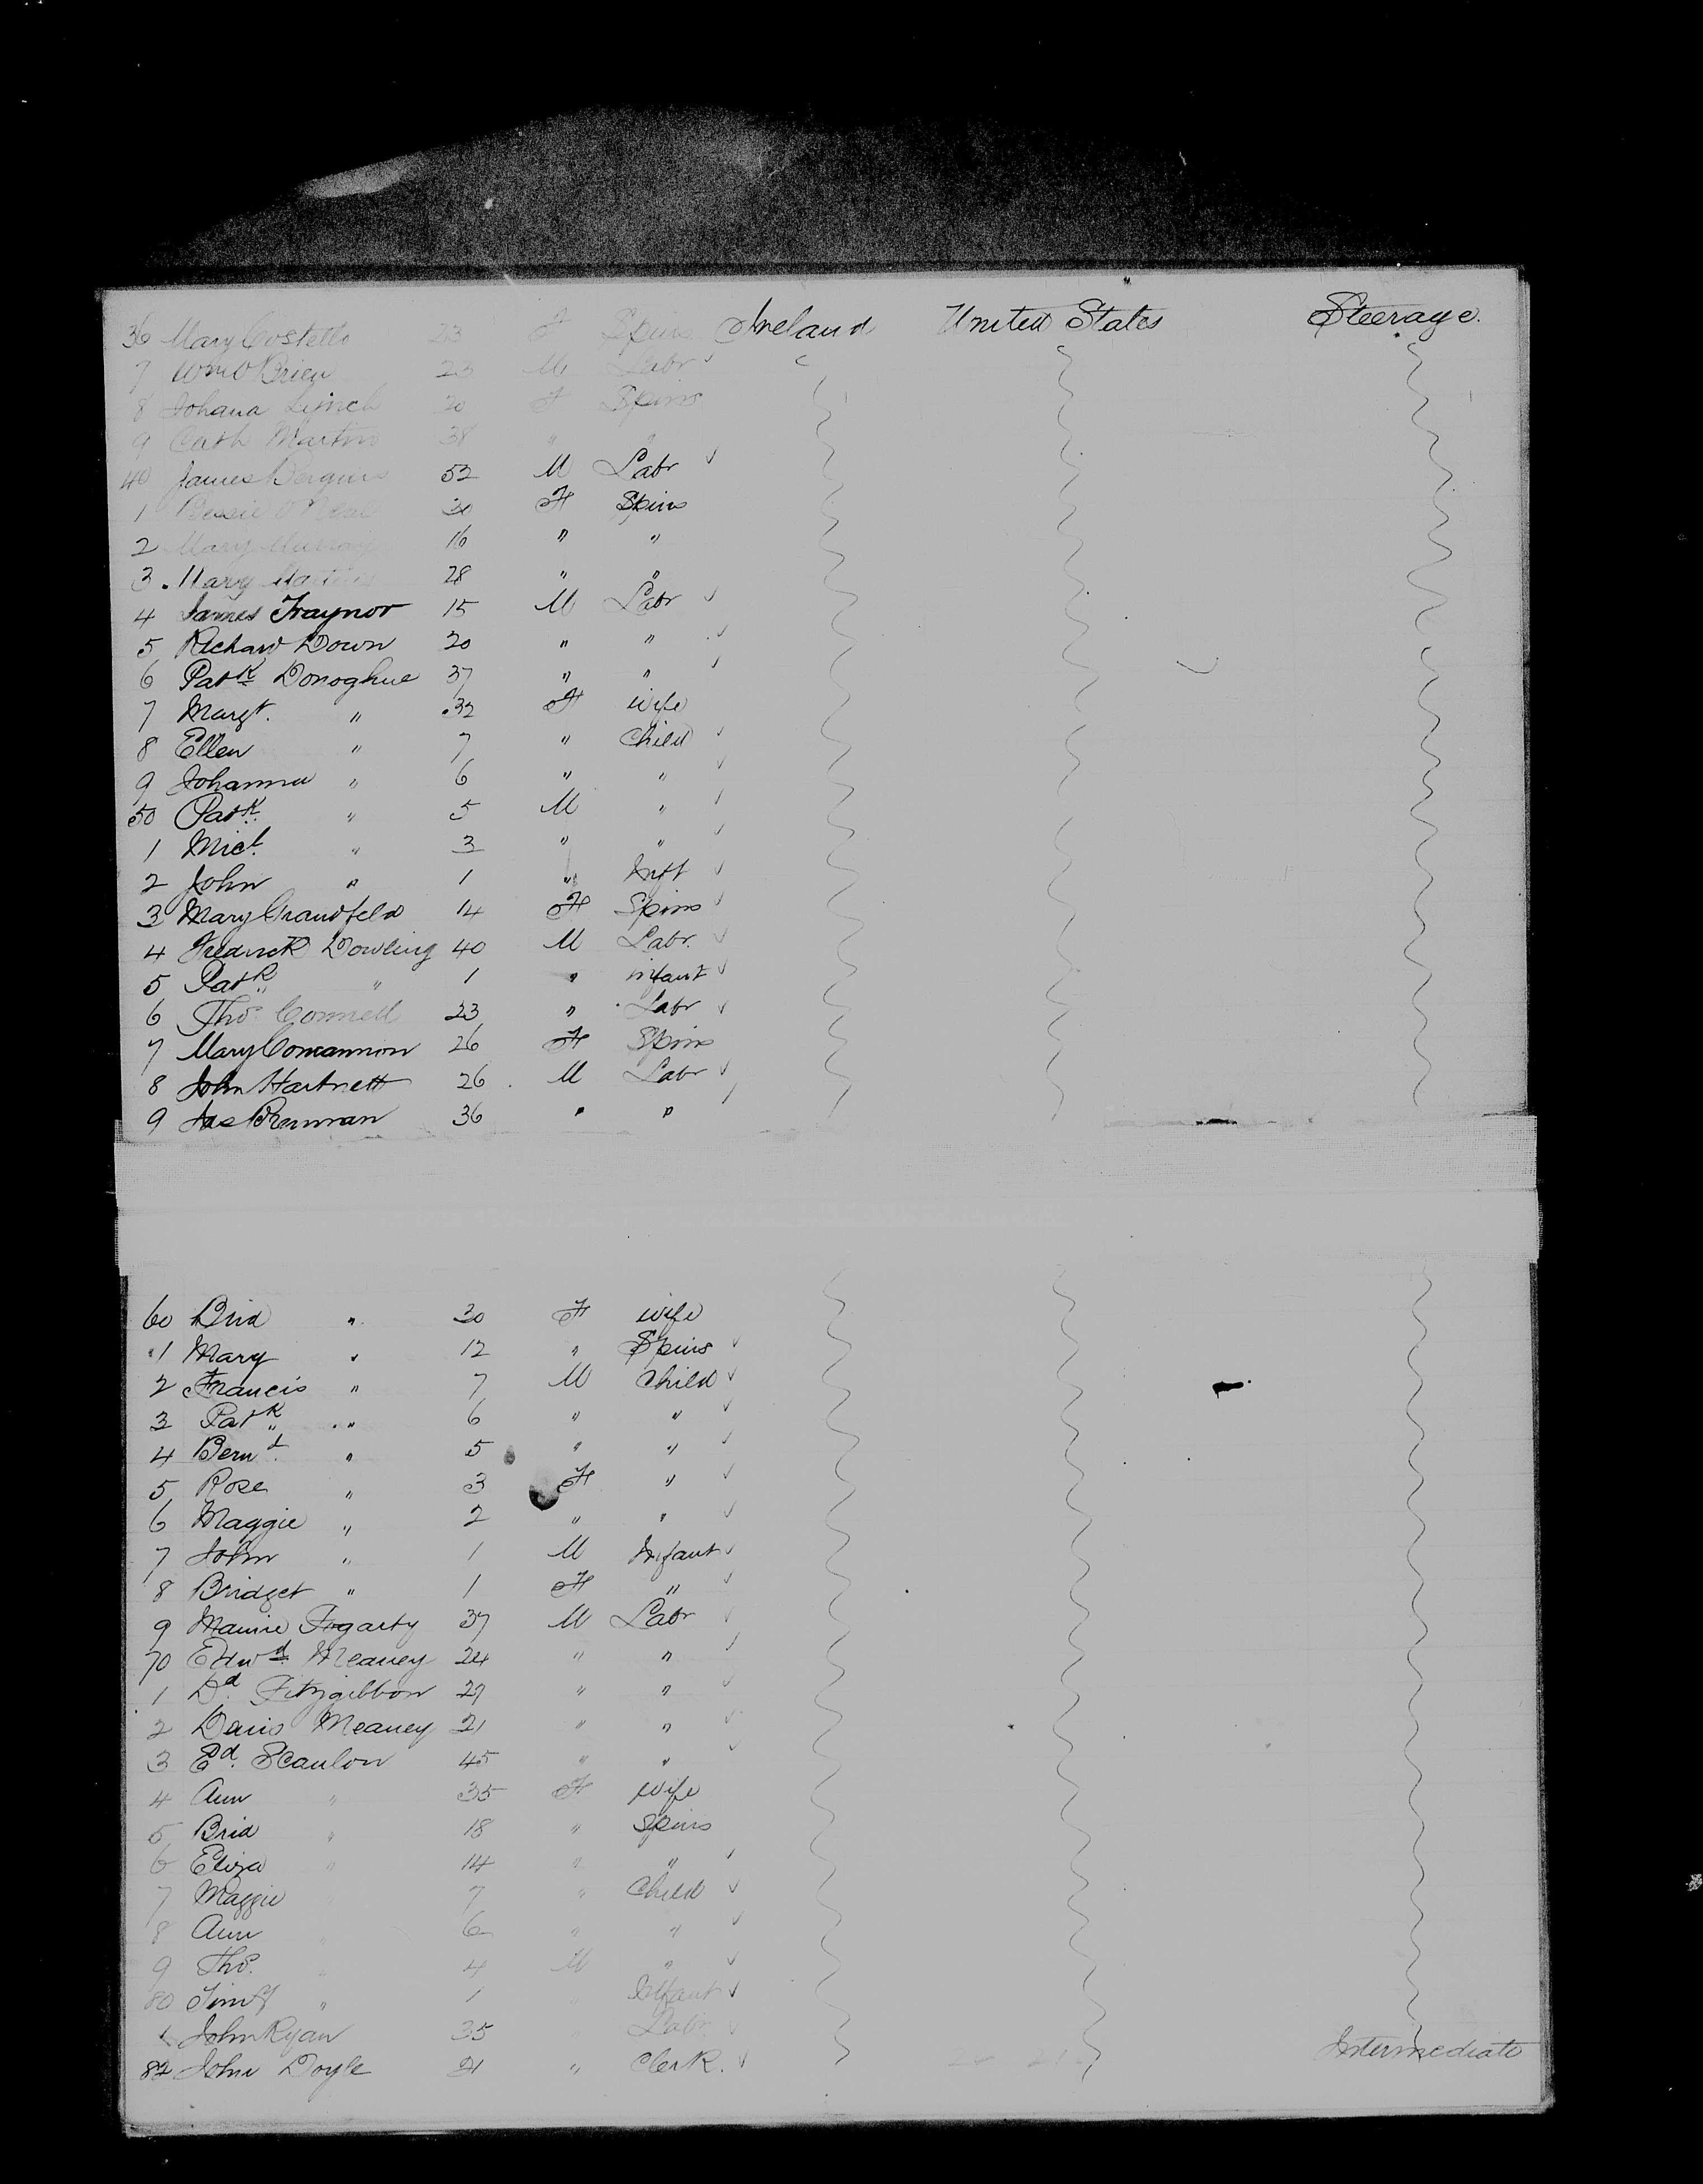 36 Mary Costello 23 F Spins Ireland United States Steerage.
7 Wm O'Brien 23 M Labr
8 Johana Lynch 20 F Spins
9 Cath Martin 38 " "
40 James Bergins 52 M Labr
1 Bessie O'Neal 30 F Spins
2 Mary Murray 16 " "
3 Mary 28 " "
4 James Traynor 15 M Labr
5 Richard Down 20 " "
6 Patk Donoghue 37 " "
7 Margt. " 32 F wife
8 Ellen " 7 " Child
9 Johanna " 6 " "
50 Patk. " 5 M "
1 Micl. " 3 " "
2 John " 1 " Inft
3 Mary Grandfeld 14 F Spins
4 Fredrick Dowling 40 M Labr.
5 Patk " 1 " infant
6 Thos. Connell 23 " Labr
7 Mary Concannon 26 F Spins
8 John Hartnett 26 M Labr
9 Jas Brennan 36 " "
60 Brid " 30 F wife
1 Mary " 12 " Spins
2 Francis " 7 M Child
3 Patk " 6 " "
4 Bernd. " 5 " "
5 Rose " 3 F "
6 Maggie " 2 " "
7 John " 1 M Infant
8 Bridget " 1 F "
9 Fogarty 37 M Labr
70 Edwd. Meaney 24 " "
1 Dd. Fitzgibbon 29 " "
2 Denis Meaney 21 " "
3 Ed. Scanlon 45 " "
4 Ann " 35 F wife
5 Brid " 18 " Spins
6 Eliza " 14 " "
7 Maggie 7 " Child
8 Ann " 6 " "
9 Thos. " 4 M "
80 Timy " 1 " Infant
1 John Ryan 35 " Labr
82 John Doyle 21 " Clerk. Intermediate